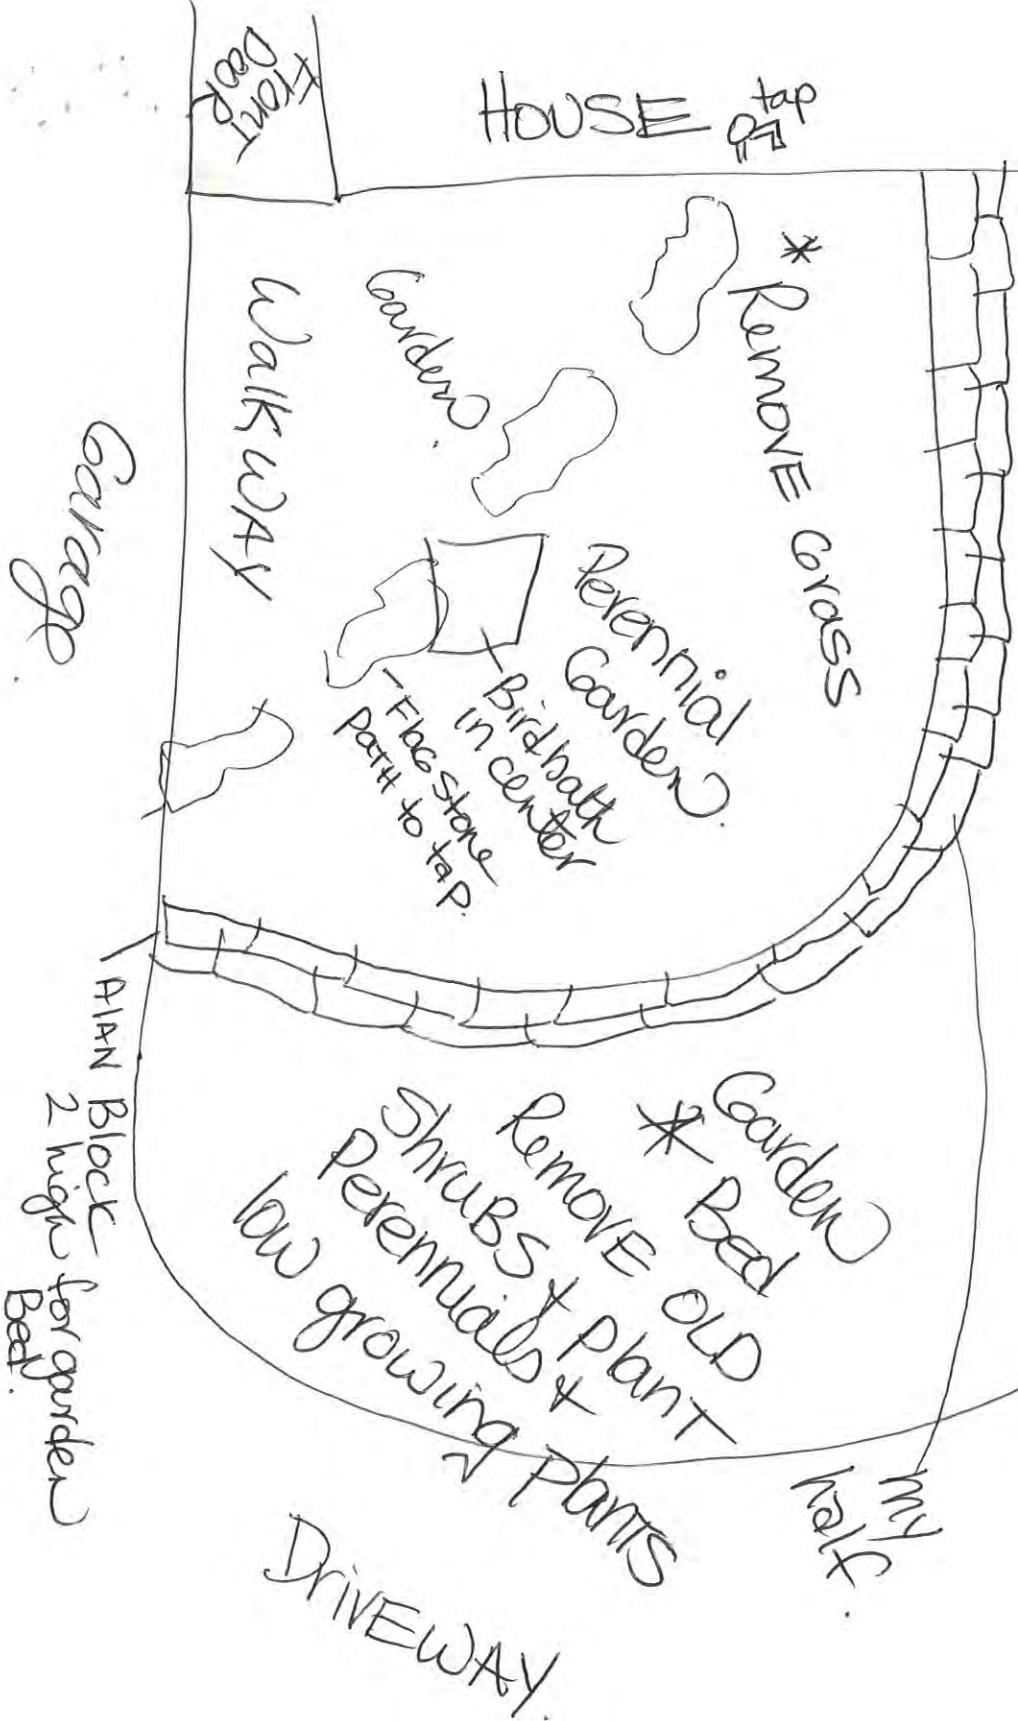 Front
Door
HOUSE
tap
* REMOVE Grass
Garden.
Walk WAY
Garage
Perennial
Garden.
Birdbath
in center
Flagstone
path to tap.
AlAN Block
2 high for garden
Bed.
Garden
* Bed
Remove OLD
Shrubs & Plant
Perennials &
low growing Plants
my
half.
DRIVEWAY.